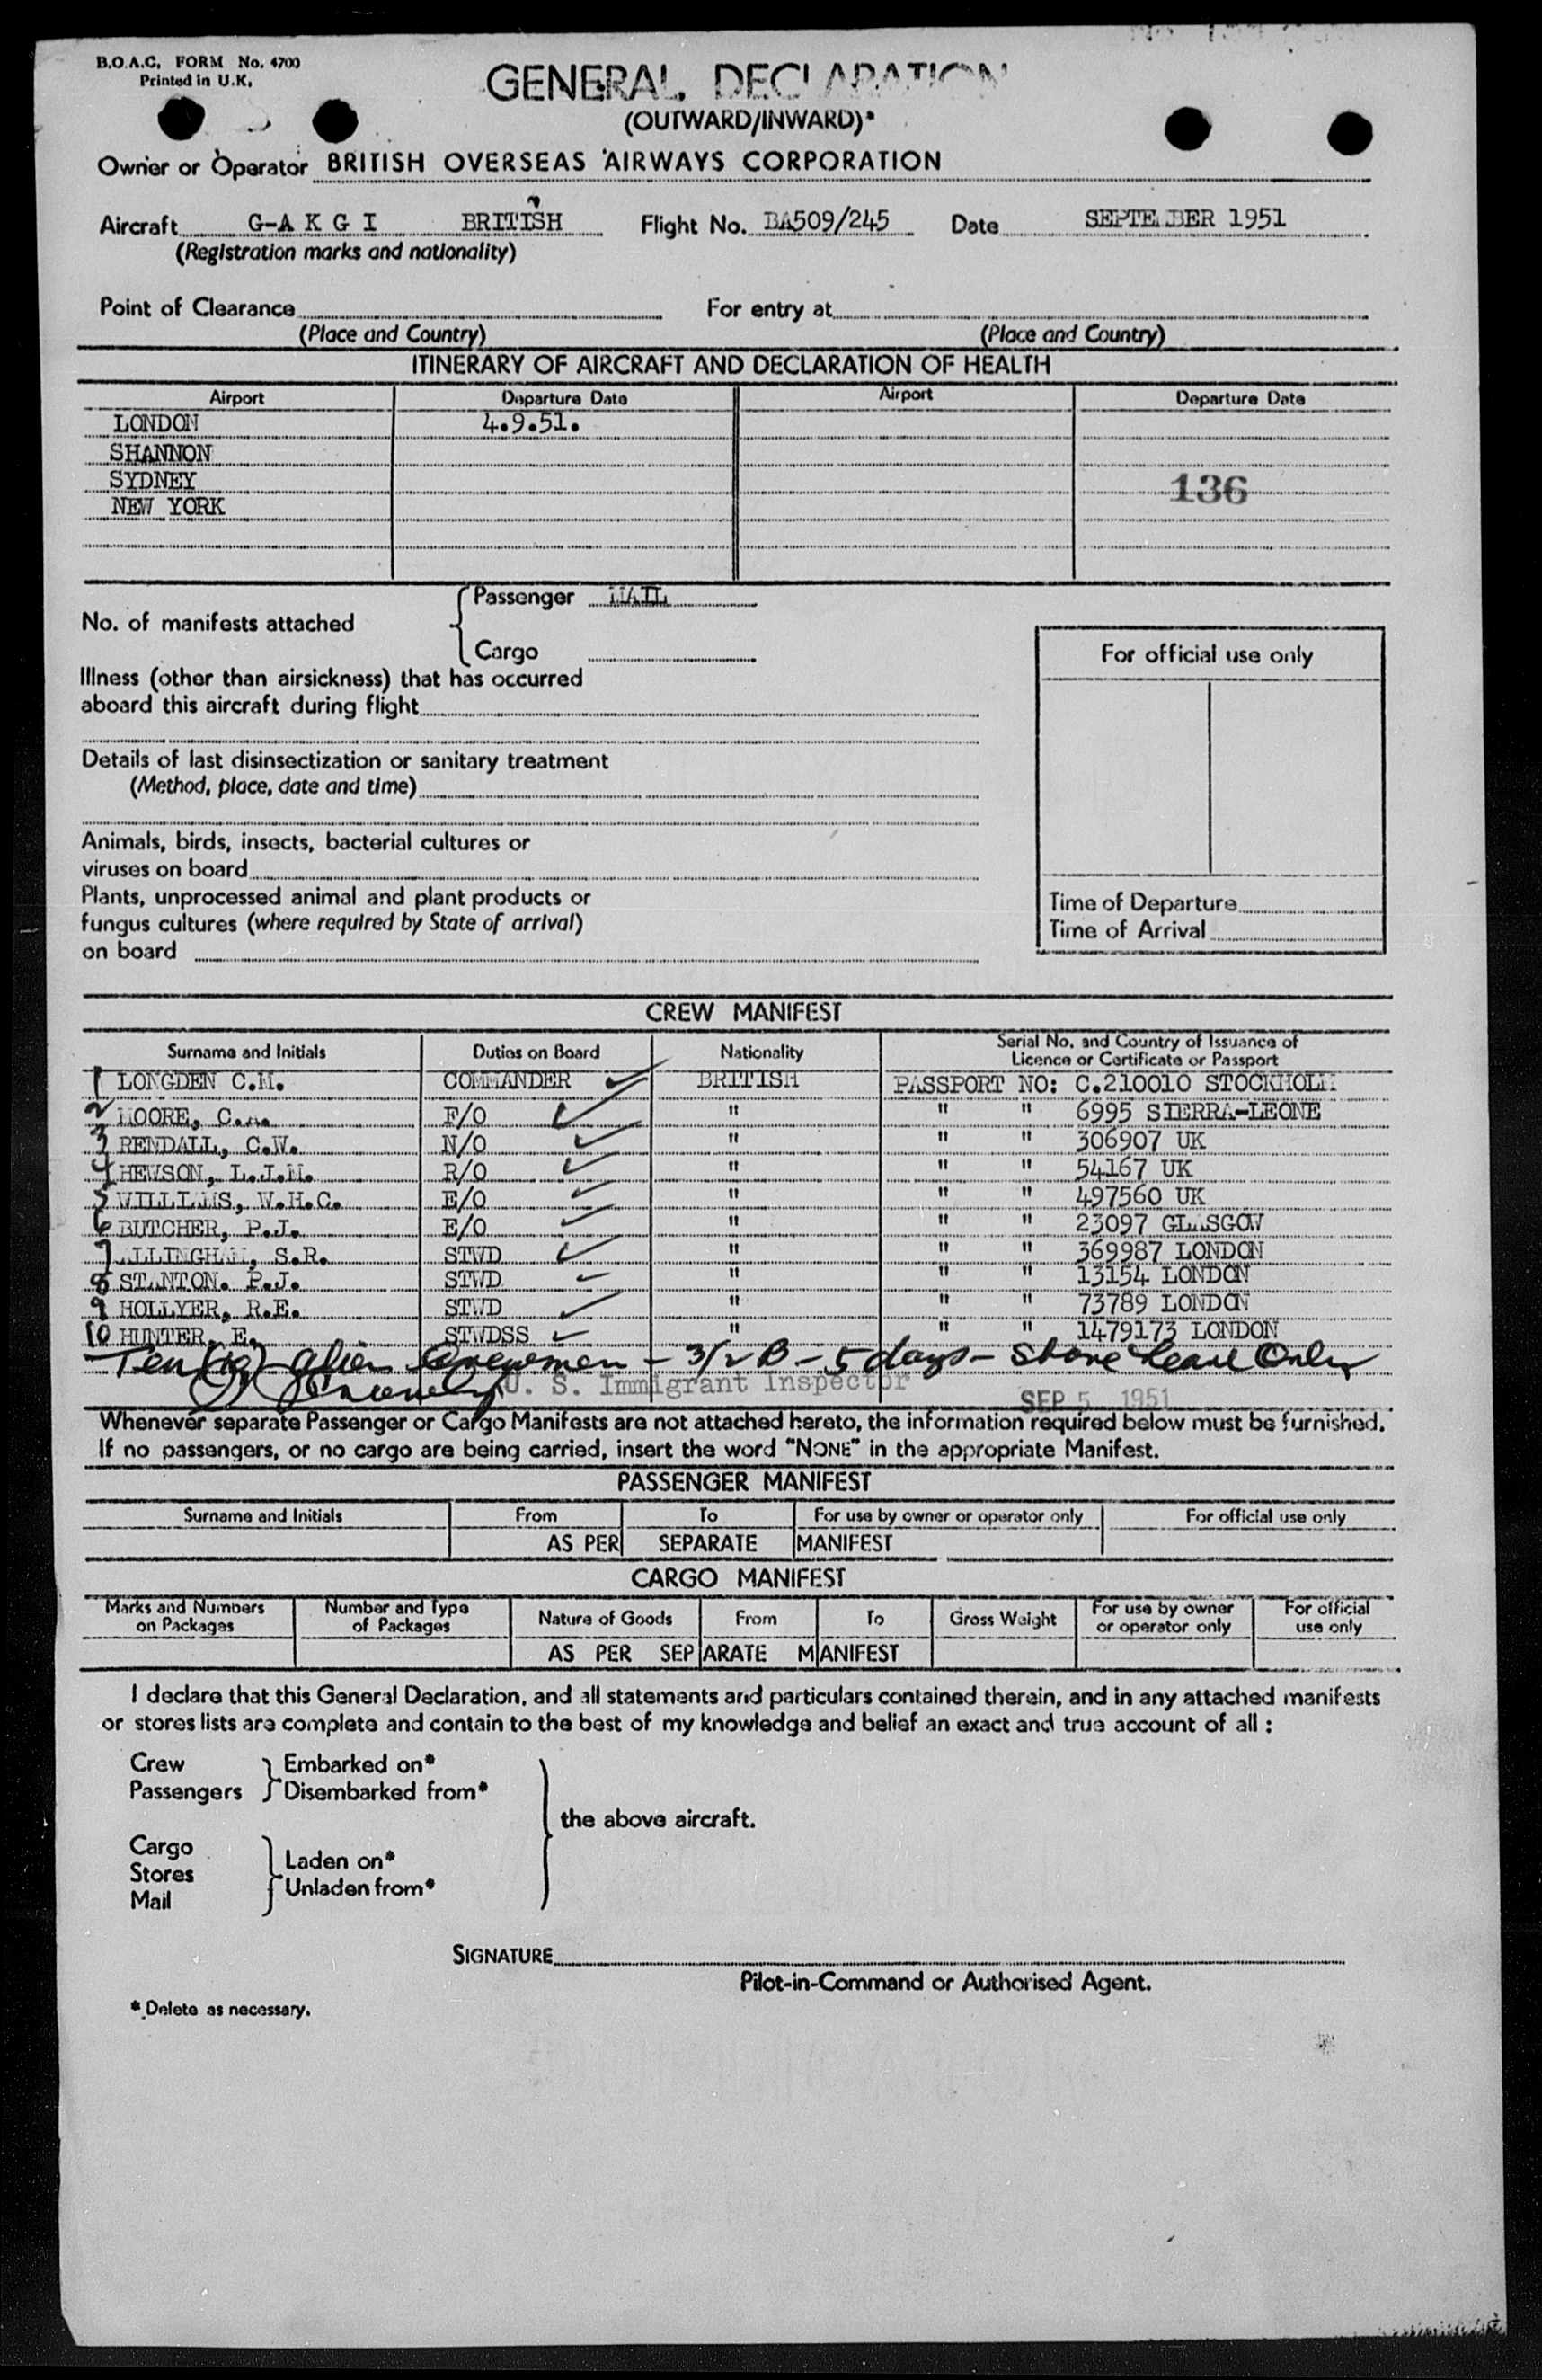 B.O.A.C. FORM No. 4700
Printed in U.K.
GENERAL DECLARATION
(OUTWARD/INWARD)*
Owner or Operator BRITISH OVERSEAS AIRWAYS CORPORATION
Aircraft G-A K G I BRITISH Flight No. BA509/245 Date SEPTEMBER 1951
(Registration marks and nationality)
Point of Clearance For entry at
(Place and Country) (Place and Country)
ITINERARY OF AIRCRAFT AND DECLARATION OF HEALTH
Airport Departure Date Airport Departure Date
LONDON 4.9.51.
SHANNON
SYDNEY 136
NEW YORK
Passenger
No. of manifests attached
Cargo
Illness (other than airsickness) that has occurred
aboard this aircraft during flight
Details of last disinsectization or sanitary treatment
(Method, place, date and time)
Animals, birds, insects, bacterial cultures or
viruses on board
Plants, unprocessed animal and plant products or
fungus cultures (where required by State of arrival)
on board
For official use only
Time of Departure
Time of Arrival
CREW MANIFEST
Surname and Initials Duties on Board Nationality Serial No. and Country of Issuance of
Licence or Certificate or Passport
1 LONGDEN C.M. COMMANDER ✓ BRITISH PASSPORT NO: C.210010 STOCKHOLM
2 MOORE, C.A. F/O ✓ " " " 6995 SIERRA-LEONE
3 RENDALL, C.W. N/O ✓ " " " 306907 UK
4 HEWSON, L.J.M. R/O ✓ " " " 54167 UK
5 WILLIAMS, W.H.C. E/O ✓ " " " 497560 UK
6 BUTCHER, P.J. E/O ✓ " " " 23097 GLASGOW
7 ALLINGHAM, S.R. STWD ✓ " " " 369987 LONDON
8 STANTON. P.J. STWD ✓ " " " 13154 LONDON
9 HOLLYER, R.E. STWD ✓ " " " 73789 LONDON
10 HUNTER, E. STWDSS ✓ " " " 1479173 LONDON
Ten (10) alien crewmen - 3/2 B - 5 days - Shore Leave Only
U. S. Immigrant Inspector SEP 5 1951
Whenever separate Passenger or Cargo Manifests are not attached hereto, the information required below must be furnished.
If no passengers, or no cargo are being carried, insert the word "NONE" in the appropriate Manifest.
PASSENGER MANIFEST
Surname and Initials From To For use by owner or operator only For official use only
AS PER SEPARATE MANIFEST
CARGO MANIFEST
Marks and Numbers on Packages Number and Type of Packages Nature of Goods From To Gross Weight For use by owner or operator only For official use only
AS PER SEPARATE MANIFEST
I declare that this General Declaration, and all statements and particulars contained therein, and in any attached manifests
or stores lists are complete and contain to the best of my knowledge and belief an exact and true account of all :
Crew Embarked on*
Passengers Disembarked from*
the above aircraft.
Cargo
Stores Laden on*
Mail Unladen from*
SIGNATURE
Pilot-in-Command or Authorised Agent.
* Delete as necessary.